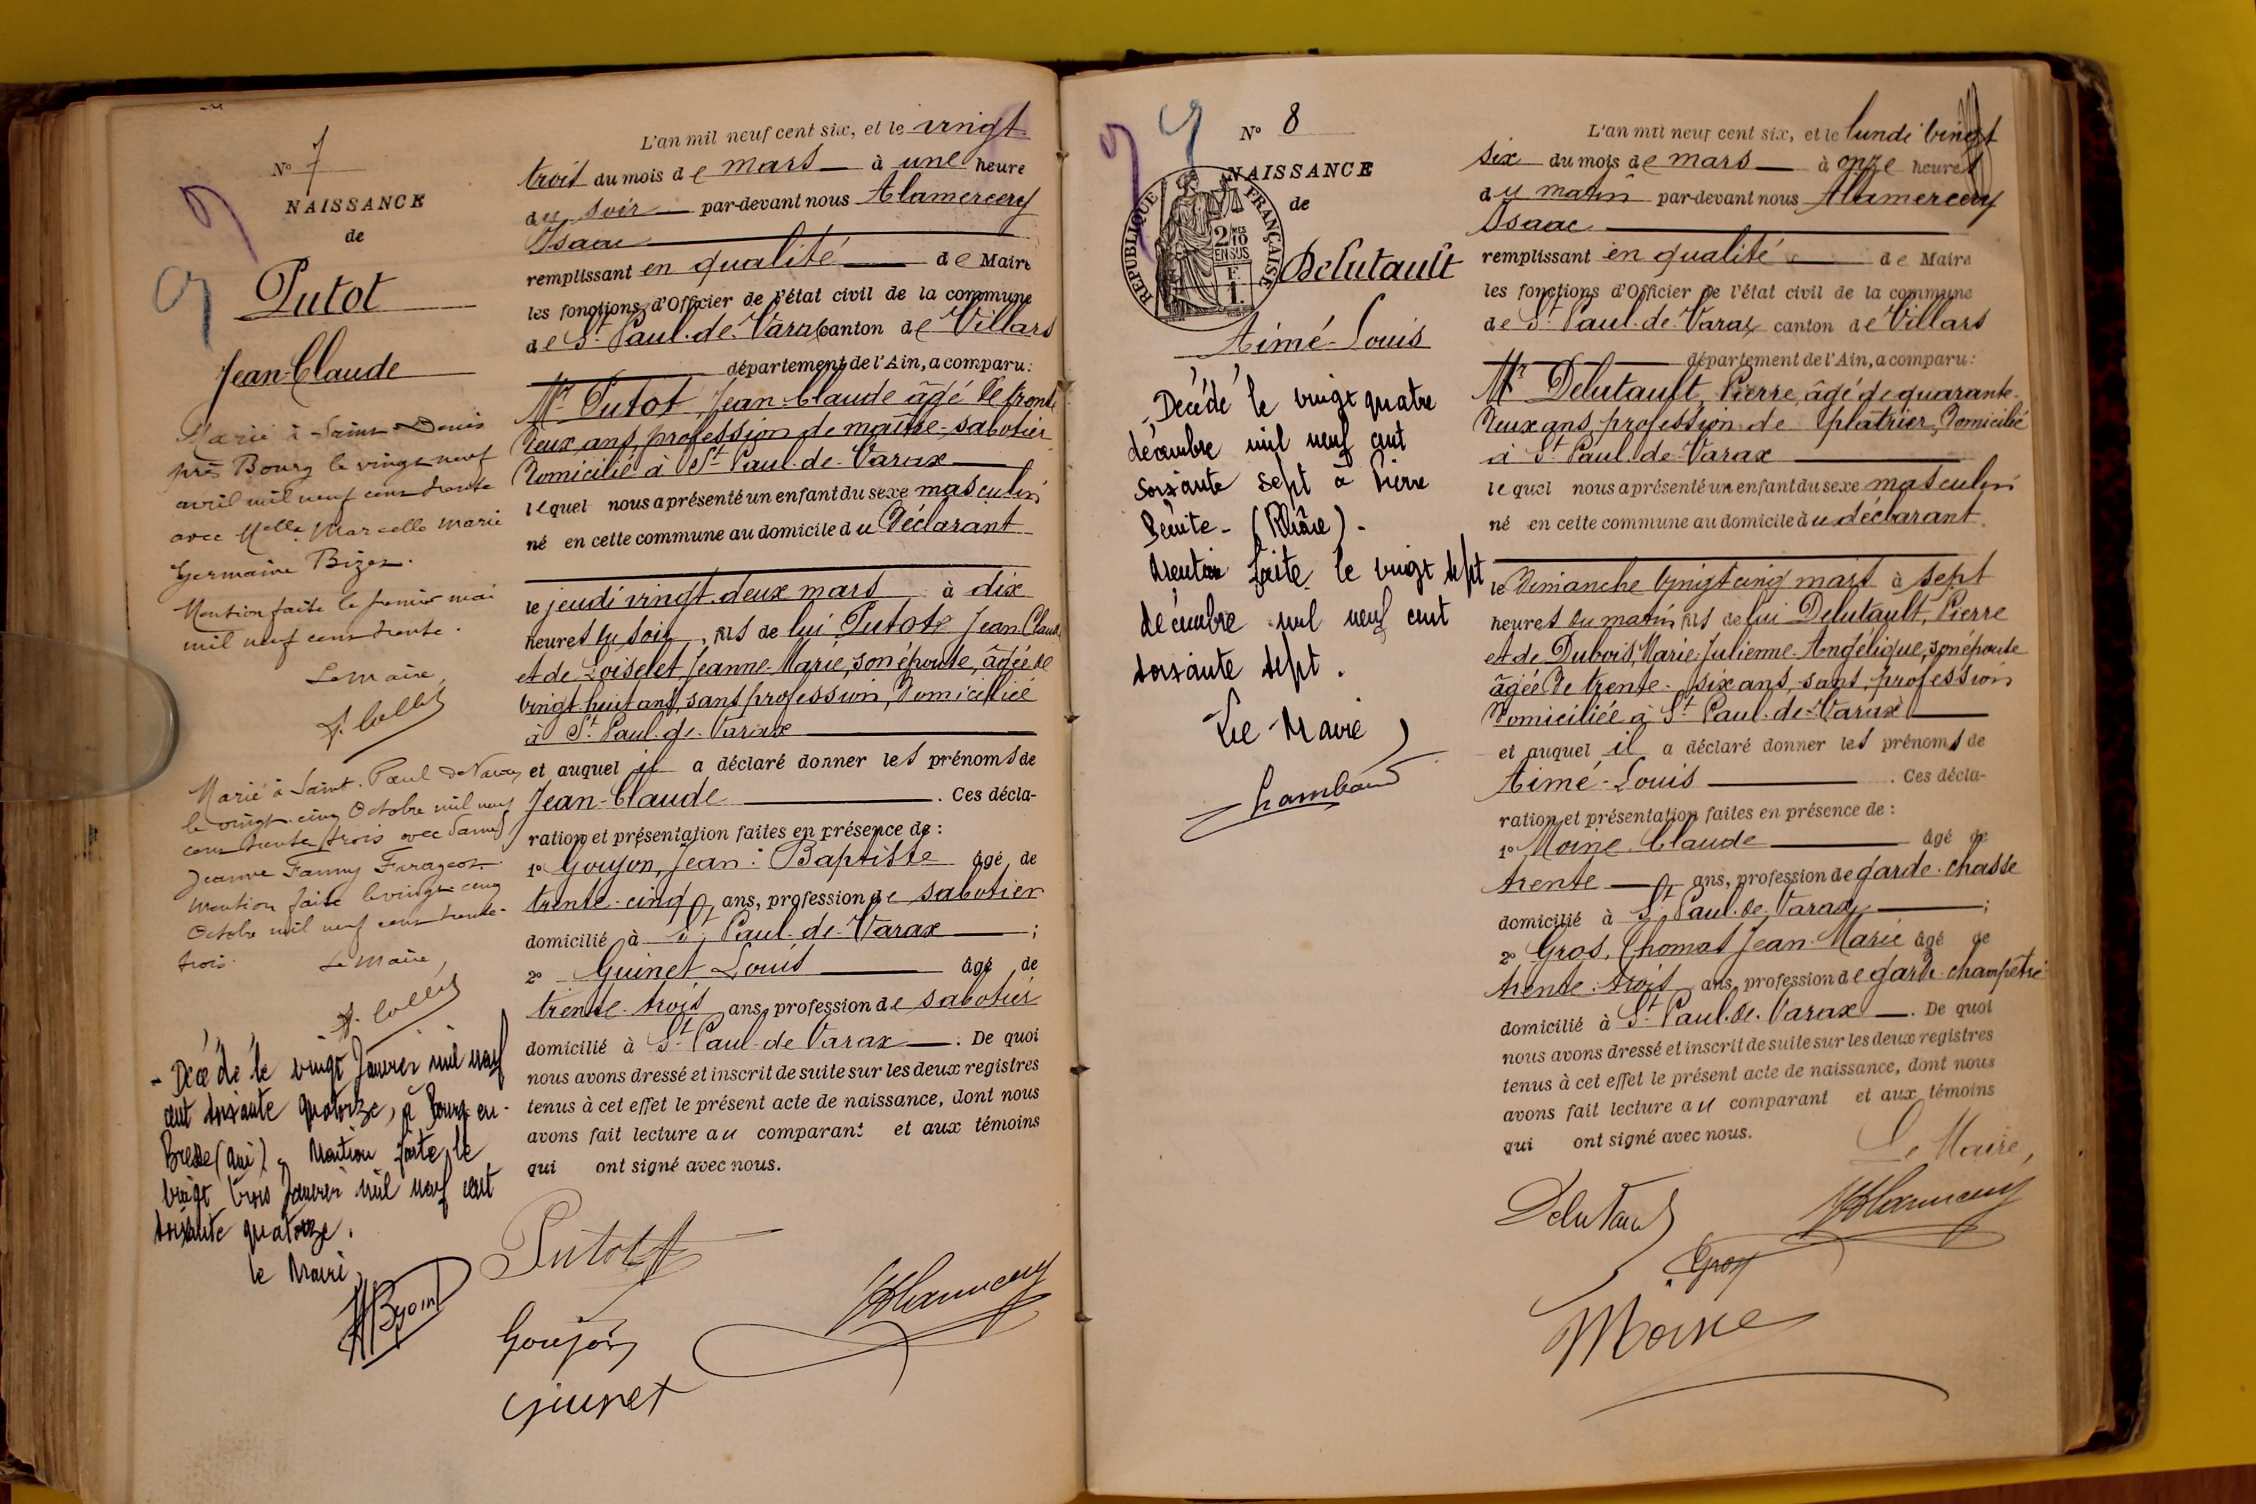 N° 7
NAISSANCE
de
Putot
Jean-Claude
Marié à Saint Denis
près Bourg le vingt neuf
avril mil neuf cent trente
avec Melle Marcelle Marie
Germaine Bizet.
Mention faite le premier mai
mil neuf cent trente.
Le Maire,
Marié à Saint-Paul de Varax
le vingt-cinq Octobre mil neuf
cent trente trois avec
Jeanne Fanny Farageot.
Mention faite le vingt cinq
Octobre mil neuf cent trente-
trois. Le Maire,
- Décédé le vingt Janvier mil neuf
cent soixante quatorze, à Bourg en-
Bresse (Ain). Mention faite le
vingt trois Janvier mil neuf cent
soixante quatorze.
le Maire,
L'an mil neuf cent six, et le vingt
trois du mois de mars à une heure
du soir par-devant nous Alamercery
Isaac
remplissant en qualité de Maire
les fonctions d'Officier de l'état civil de la commune
de St Paul-de-Varax canton de Villars
département de l'Ain, a comparu:
Mr Putot, Jean-Claude âgé de trente
deux ans, profession de maître-sabotier
domicilié à St Paul-de-Varax
lequel nous a présenté un enfant du sexe masculin
né en cette commune au domicile du déclarant
le jeudi vingt-deux mars à dix
heures du soir, fils de lui Putot Jean Claude
et de Loiselet Jeanne-Marie, son épouse, âgée de
vingt huit ans, sans profession, domiciliée
à St Paul-de-Varax
et auquel il a déclaré donner les prénoms de
Jean-Claude. Ces décla-
ration et présentation faites en présence de:
1° Goujon, Jean-Baptiste âgé de
trente-cinq ans, profession de sabotier
domicilié à St Paul-de-Varax;
2° Guinet Louis âgé de
trente-trois ans, profession de sabotier
domicilié à St Paul-de Varax. De quoi
nous avons dressé et inscrit de suite sur les deux registres
tenus à cet effet le présent acte de naissance, dont nous
avons fait lecture au comparant et aux témoins
qui ont signé avec nous.
Putot
Goujon
Guinet
N° 8
NAISSANCE
de
RÉPUBLIQUE FRANÇAISE
2/10
EN SUS
Delutault
Aimé-Louis
Décédé le vingt quatre
décembre mil neuf cent
soixante sept à Pierre
Bénite- (Rhône)-
Mention faite le vingt sept
décembre mil neuf cent
soixante sept.
Le Maire
L'an mil neuf cent six, et le lundi vingt
six du mois de mars à onze heures
du matin par-devant nous Alamercery
Isaac
remplissant en qualité de Maire
les fonctions d'Officier de l'état civil de la commune
de St Paul-de-Varax canton de Villars
département de l'Ain, a comparu:
Mr Delutault, Pierre, âgé de quarante-
deux ans, profession de plâtrier, domicilié
à St Paul-de-Varax
lequel nous a présenté un enfant du sexe masculin
né en cette commune au domicile du déclarant.
le Dimanche vingt cinq mars à sept
heures du matin fils de lui Delutault, Pierre
et de Dubois, Marie-Julienne-Angélique, son épouse
âgée de trente-six ans, sans profession
domiciliée à St Paul-de-Varax
et auquel il a déclaré donner les prénoms de
Aimé-Louis. Ces décla-
ration et présentation faites en présence de:
1° Moine Claude âgé de
trente ans, profession de garde-chasse
domicilié à St Paul-de-Varax;
2° Gros, Thomas Jean-Marie âgé de
trente-trois ans, profession de garde-champêtre
domicilié à St Paul-de-Varax. De quoi
nous avons dressé et inscrit de suite sur les deux registres
tenus à cet effet le présent acte de naissance, dont nous
avons fait lecture au comparant et aux témoins
qui ont signé avec nous.
Le Maire,
Delutault
Gros
Moine